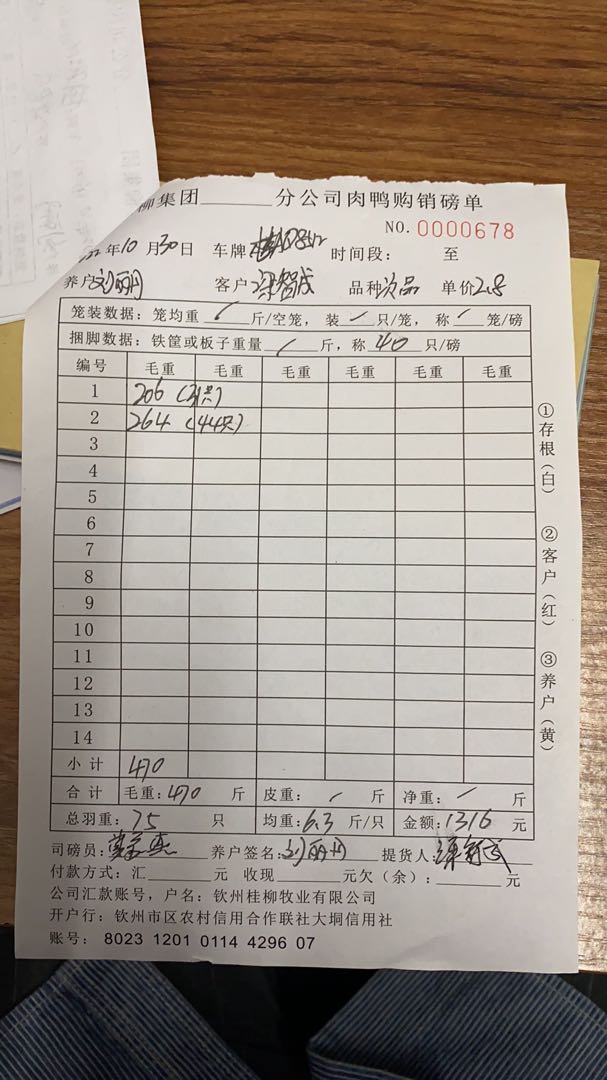 柳集团______分公司肉鸭购销磅单
NO.0000678
年10月30日 车牌 时间段： 至
养户刘丽丹 客户梁智成 品种次品 单价2.8
笼装数据：笼均重 / 斤/空笼，装 / 只/笼，称 / 笼/磅
捆脚数据：铁筐或板子重量 / 斤，称 40 只/磅
编号 毛重 毛重 毛重 毛重 毛重
1 206（31只）
2 264（44只）
3
4
5
6
7
8
9
10
11
12
13
14
小计 470
合计 毛重：470 斤 皮重：/ 斤 净重：/ 斤
总羽重：75 只 均重：6.3 斤/只 金额：1316 元
司磅员： 养户签名：刘丽丹 提货人：
付款方式：汇______元 收现______元欠（余）：______元
公司汇款账号，户名：钦州桂柳牧业有限公司
开户行：钦州市区农村信用合作联社大垌信用社
账号：8023 1201 0114 4296 07
①存根（白）
②客户（红）
③养户（黄）